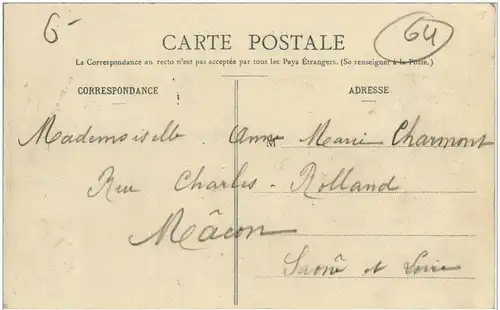 6-
64
CARTE POSTALE
La Correspondance au recto n'est pas acceptée par tous les Pays Étrangers. (Se renseigner à la Poste.)
CORRESPONDANCE
ADRESSE
Mademoiselle Anne Marie Charmont
M
Rue Charles-Rolland
Mâcon
Saone et Loire